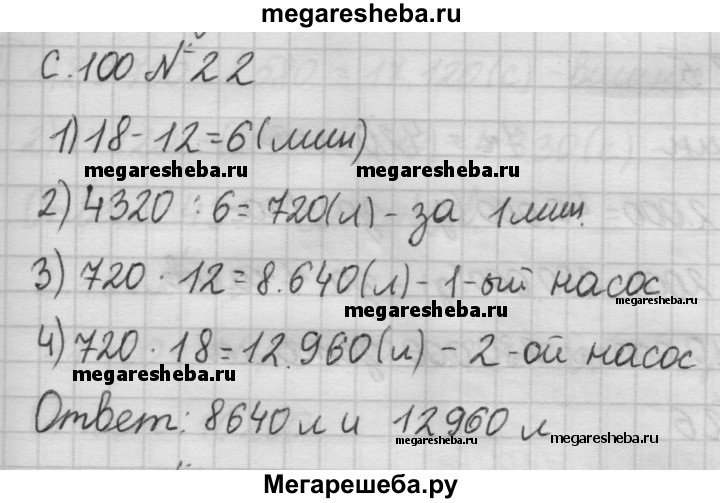 megaresheba.ru
с. 100 № 22
1) 18 - 12 = 6 (мин)
megaresheba.ru megaresheba.ru
2) 4320 : 6 = 720 (л) - за 1 мин.
3) 720 · 12 = 8.640 (л) - 1-ый насос
megaresheba.ru megaresheba.ru
4) 720 · 18 = 12.960 (л) - 2-ой насос
megaresheba.ru
Ответ: 8640 л и 12960 л
megaresheba.ru megaresheba.ru
Мегарешеба.ру